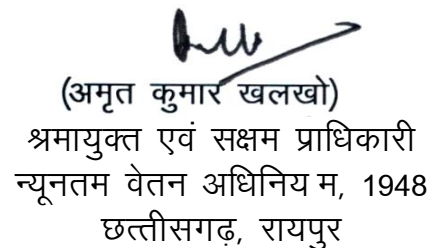 (अमृत कुमार खलखो)
श्रमायुक्त एवं सक्षम प्राधिकारी
न्यूनतम वेतन अधिनिय म, 1948
छत्तीसगढ़, रायपुर